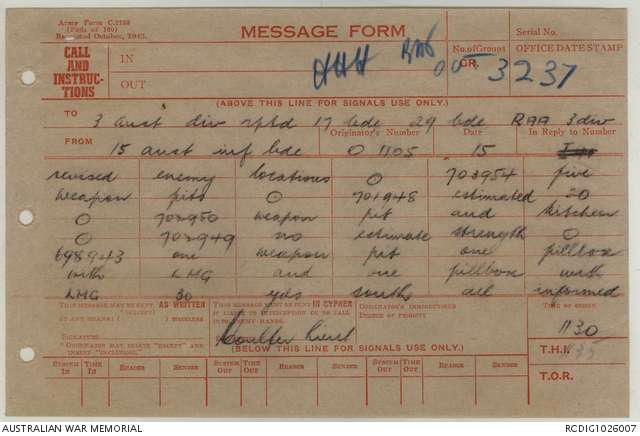 Army Form C.2128
(Pads of 100)
Revised October, 1943.
MESSAGE FORM
Serial No.
CALL AND INSTRUCTIONS
IN
OUT
No. of Groups
GR.
OFFICE DATE STAMP
3237
(ABOVE THIS LINE FOR SIGNALS USE ONLY.)
TO 3 aust div rptd 17 bde 29 bde RAA 3 div
FROM Originator's Number Date In Reply to Number
15 aust inf bde O 1105 15
revised enemy locations O 702954 five
weapon pits O 701948 estimated 20
O 702950 weapon pit and kitchen
O 702949 no estimate strength O
698943 one weapon pit one pillbox
with LMG and one pillbox with
LMG 30 yds south all informed
THIS MESSAGE MAY BE SENT AS WRITTEN
THIS MESSAGE MUST BE SENT IN CYPHER
ORIGINATOR'S INSTRUCTIONS
DEGREE OF PRIORITY
TIME OF ORIGIN
1130
SIGNATURE
(BELOW THIS LINE FOR SIGNALS USE ONLY.)
T.H.I.
SYSTEM IN TIME IN READER SENDER SYSTEM OUT TIME OUT READER SENDER SYSTEM OUT TIME OUT READER SENDER
T.O.R.
AUSTRALIAN WAR MEMORIAL
RCDIG1026007